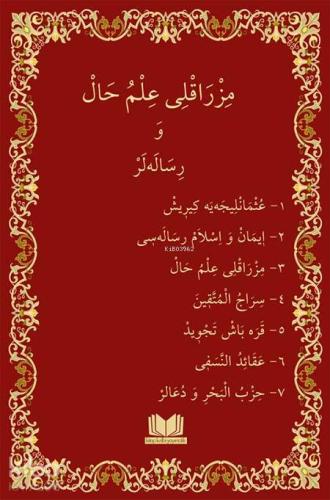 مِزْرَاقْلِى عِلْمُ حَالْ
وَ
رِسَالَەلَرْ
١- عُثْمَانْلِيجَەيَە كِيرِيشْ
٢- اِيمَانْ وَ اِسْلَامْ رِسَالَەسِى
KİB03962
٣- مِزْرَاقْلِى عِلْمُ حَالْ
٤- سِرَاجُ الْمُتَّقِينَ
٥- قَرَە بَاشْ تَجْوِيدْ
٦- عَقَائِدُ النَّسَفِى
٧- حِزْبُ الْبَحْرِ وَ دُعَالَرْ